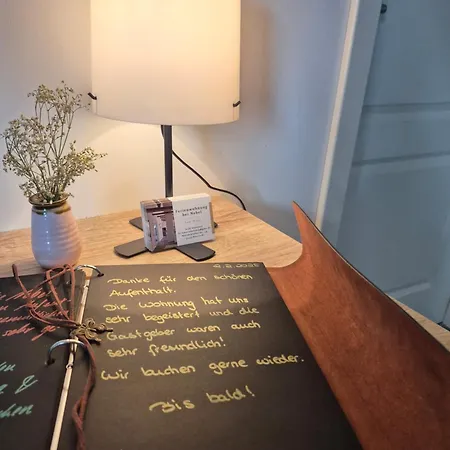 Ferienwohnung
bei Nebel
Danke für den schönen
Aufenthalt.
Die Wohnung hat uns
sehr begeistert und die
Gastgeber waren auch
sehr freundlich!
Wir buchen gerne wieder.
Bis bald!